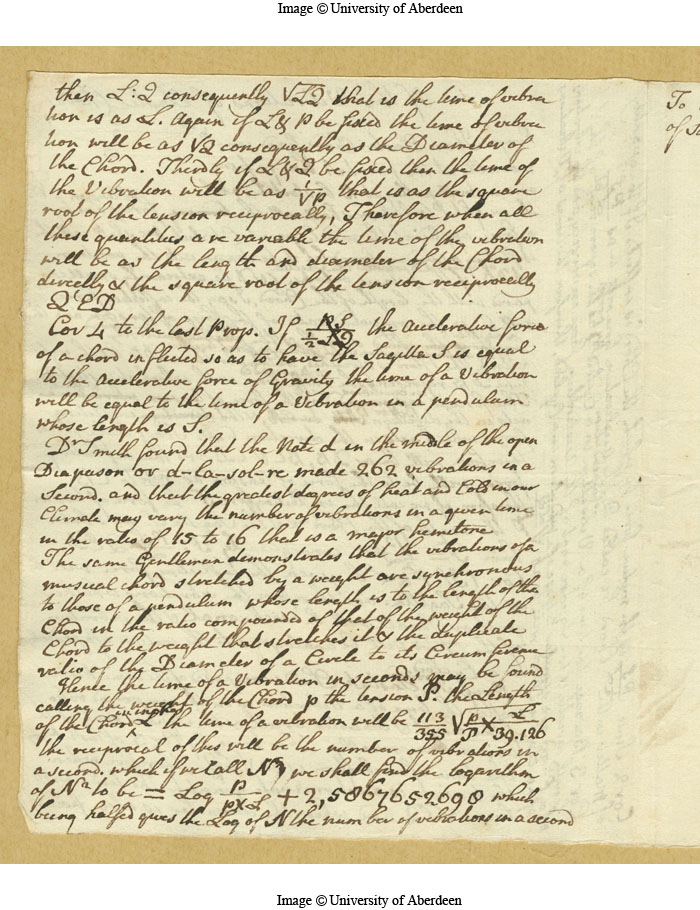 Image © University of Aberdeen
then L:Q consequently √LQ that is the time of vibra
tion is as L. Again if L & P be fixed the time of vibra
tion will be as √Q consequently as the Diameter of
the Chord. Thirdly if L & Q be fixed then the time of
the Vibration will be as 1/√P that is as the square
root of the tension reciprocally, Therefore when all
these quantities are variable the time of the vibration
will be as the length and diameter of the Chord
directly & the square root of the tension reciprocally
Q E D
Cor 4 to the last Prop. If PS/½LQ the accelerative force
of a chord inflected so as to have the Sagitta S is equal
to the accelerative force of Gravity the time of a Vibration
will be equal to the time of a Vibration in a pendulum
whose length is S.
Dr Smith found that the Note d in the middle of the open
Diapason or d-la-sol-re made 262 vibrations in a
Second. and that the greatest degrees of heat and Cold in our
Climate may vary the number of vibrations in a given time
in the ratio of 15 to 16 that is a major hemitone
The same Gentleman demonstrates that the vibrations of a
musical chord stretched by a weight are synchronous
to those of a pendulum whose length is to the length of the
Chord in the ratio compounded of that of the weight of the
Chord to the weight that stretches it & the duplicate
ratio of the Diameter of a Circle to its Circumference
Hence the time of a Vibration in seconds may be found
calling the weight of the Chord p the tension P. the Length
of the Chord in inches L the time of a vibration will be 113/355 √p/P × L/39.126
the reciprocal of this will be the number of vibrations in
a second. which if we call N, we shall find the logarithm
of N² to be = Log P/p×L + 2,5867652698 which
being halfed gives the Log of N the number of vibrations in a second
To
Image © University of Aberdeen